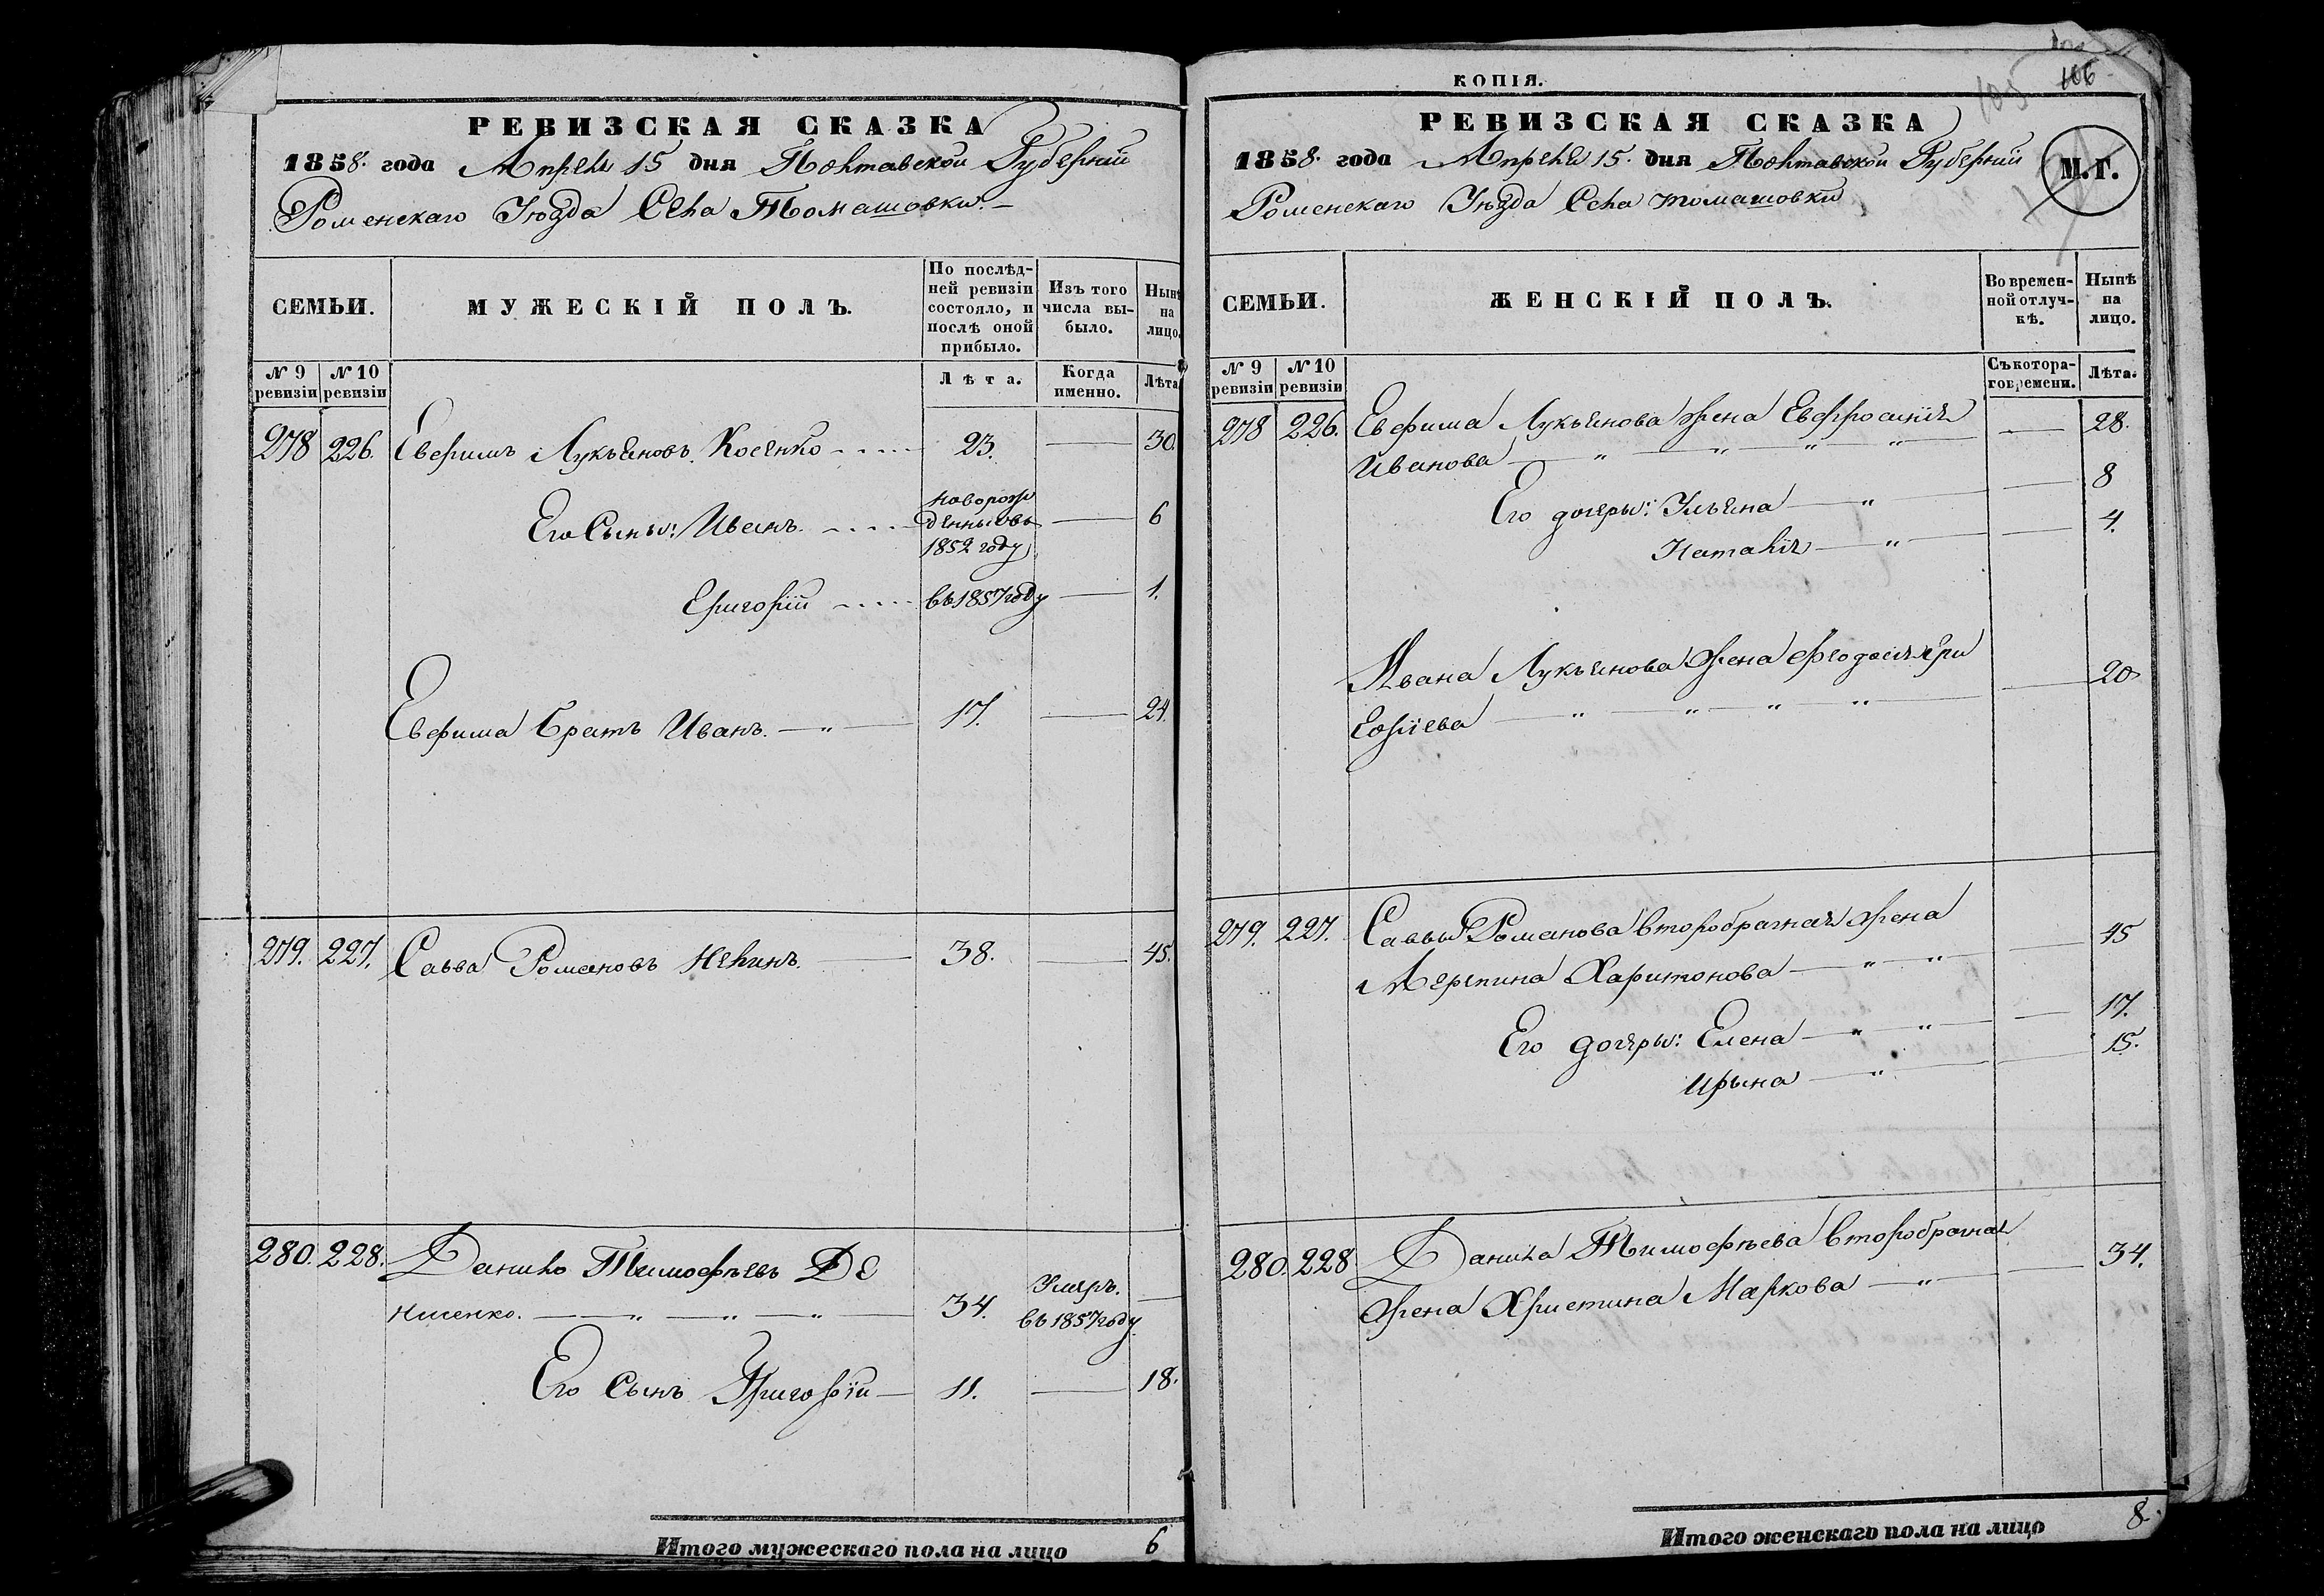 РЕВИЗСКАЯ СКАЗКА
1858. года Апреля 15 дня Полтавской Губернии
Роменскаго Уюзда Села Томашовки.
СЕМЬИ.
МУЖЕСКІЙ ПОЛЪ.
По послѣд-
ней ревизіи
состояло, и
послѣ оной
прибыло.
Изъ того
числа вы-
было.
Нынѣ
на
лицо.
№ 9
ревизіи
№ 10
ревизіи
Лѣта.
Когда
именно.
Лѣта
278 226. Евфимъ Лукьяновъ Косенко 23. 30.
Его Сыны: Иванъ новорож
денны овъ 6
1852 году
Григорій въ 1857 году 1.
Евфима братъ Иванъ. 17. 24.
279. 227. Савва Романовъ Нелинъ. 38. 45.
280. 228. Данило Тимофѣевъ Де
нисенко. 34. Умеръ. въ 1857 году
Его Сынъ Григорій 11. 18.
Итого мужескаго пола на лицо 6
КОПІЯ.
105 106
РЕВИЗСКАЯ СКАЗКА
1858. года Апреля 15. дня Полтавской Губерніи
М.Г.
Роменскаго Уѣзда Села томашовки
СЕМЬИ.
ЖЕНСКІЙ ПОЛЪ.
Во времен-
ной отлуч-
кѣ.
Нынѣ
на
лицо.
№ 9
ревизіи
№ 10
ревизіи
Съ котора-
го времени.
Лѣта.
278 226. Евфима Лукьянова жена Евфросинія 28.
Иванова
Его дочеры: Ульяна 8
Наталія 4.
Ивана Лукьянова жена Феодосия Гри 20
горіева
279. 227. Саввы Романова второбрачная жена 45
Агрепина Харитонова
Его дочеры: Елена 17.
Ирына 15.
280. 228 Данила Тимофѣева второбрачная 34.
жена Христина Маркова
Итого женскаго пола на лицо 8.